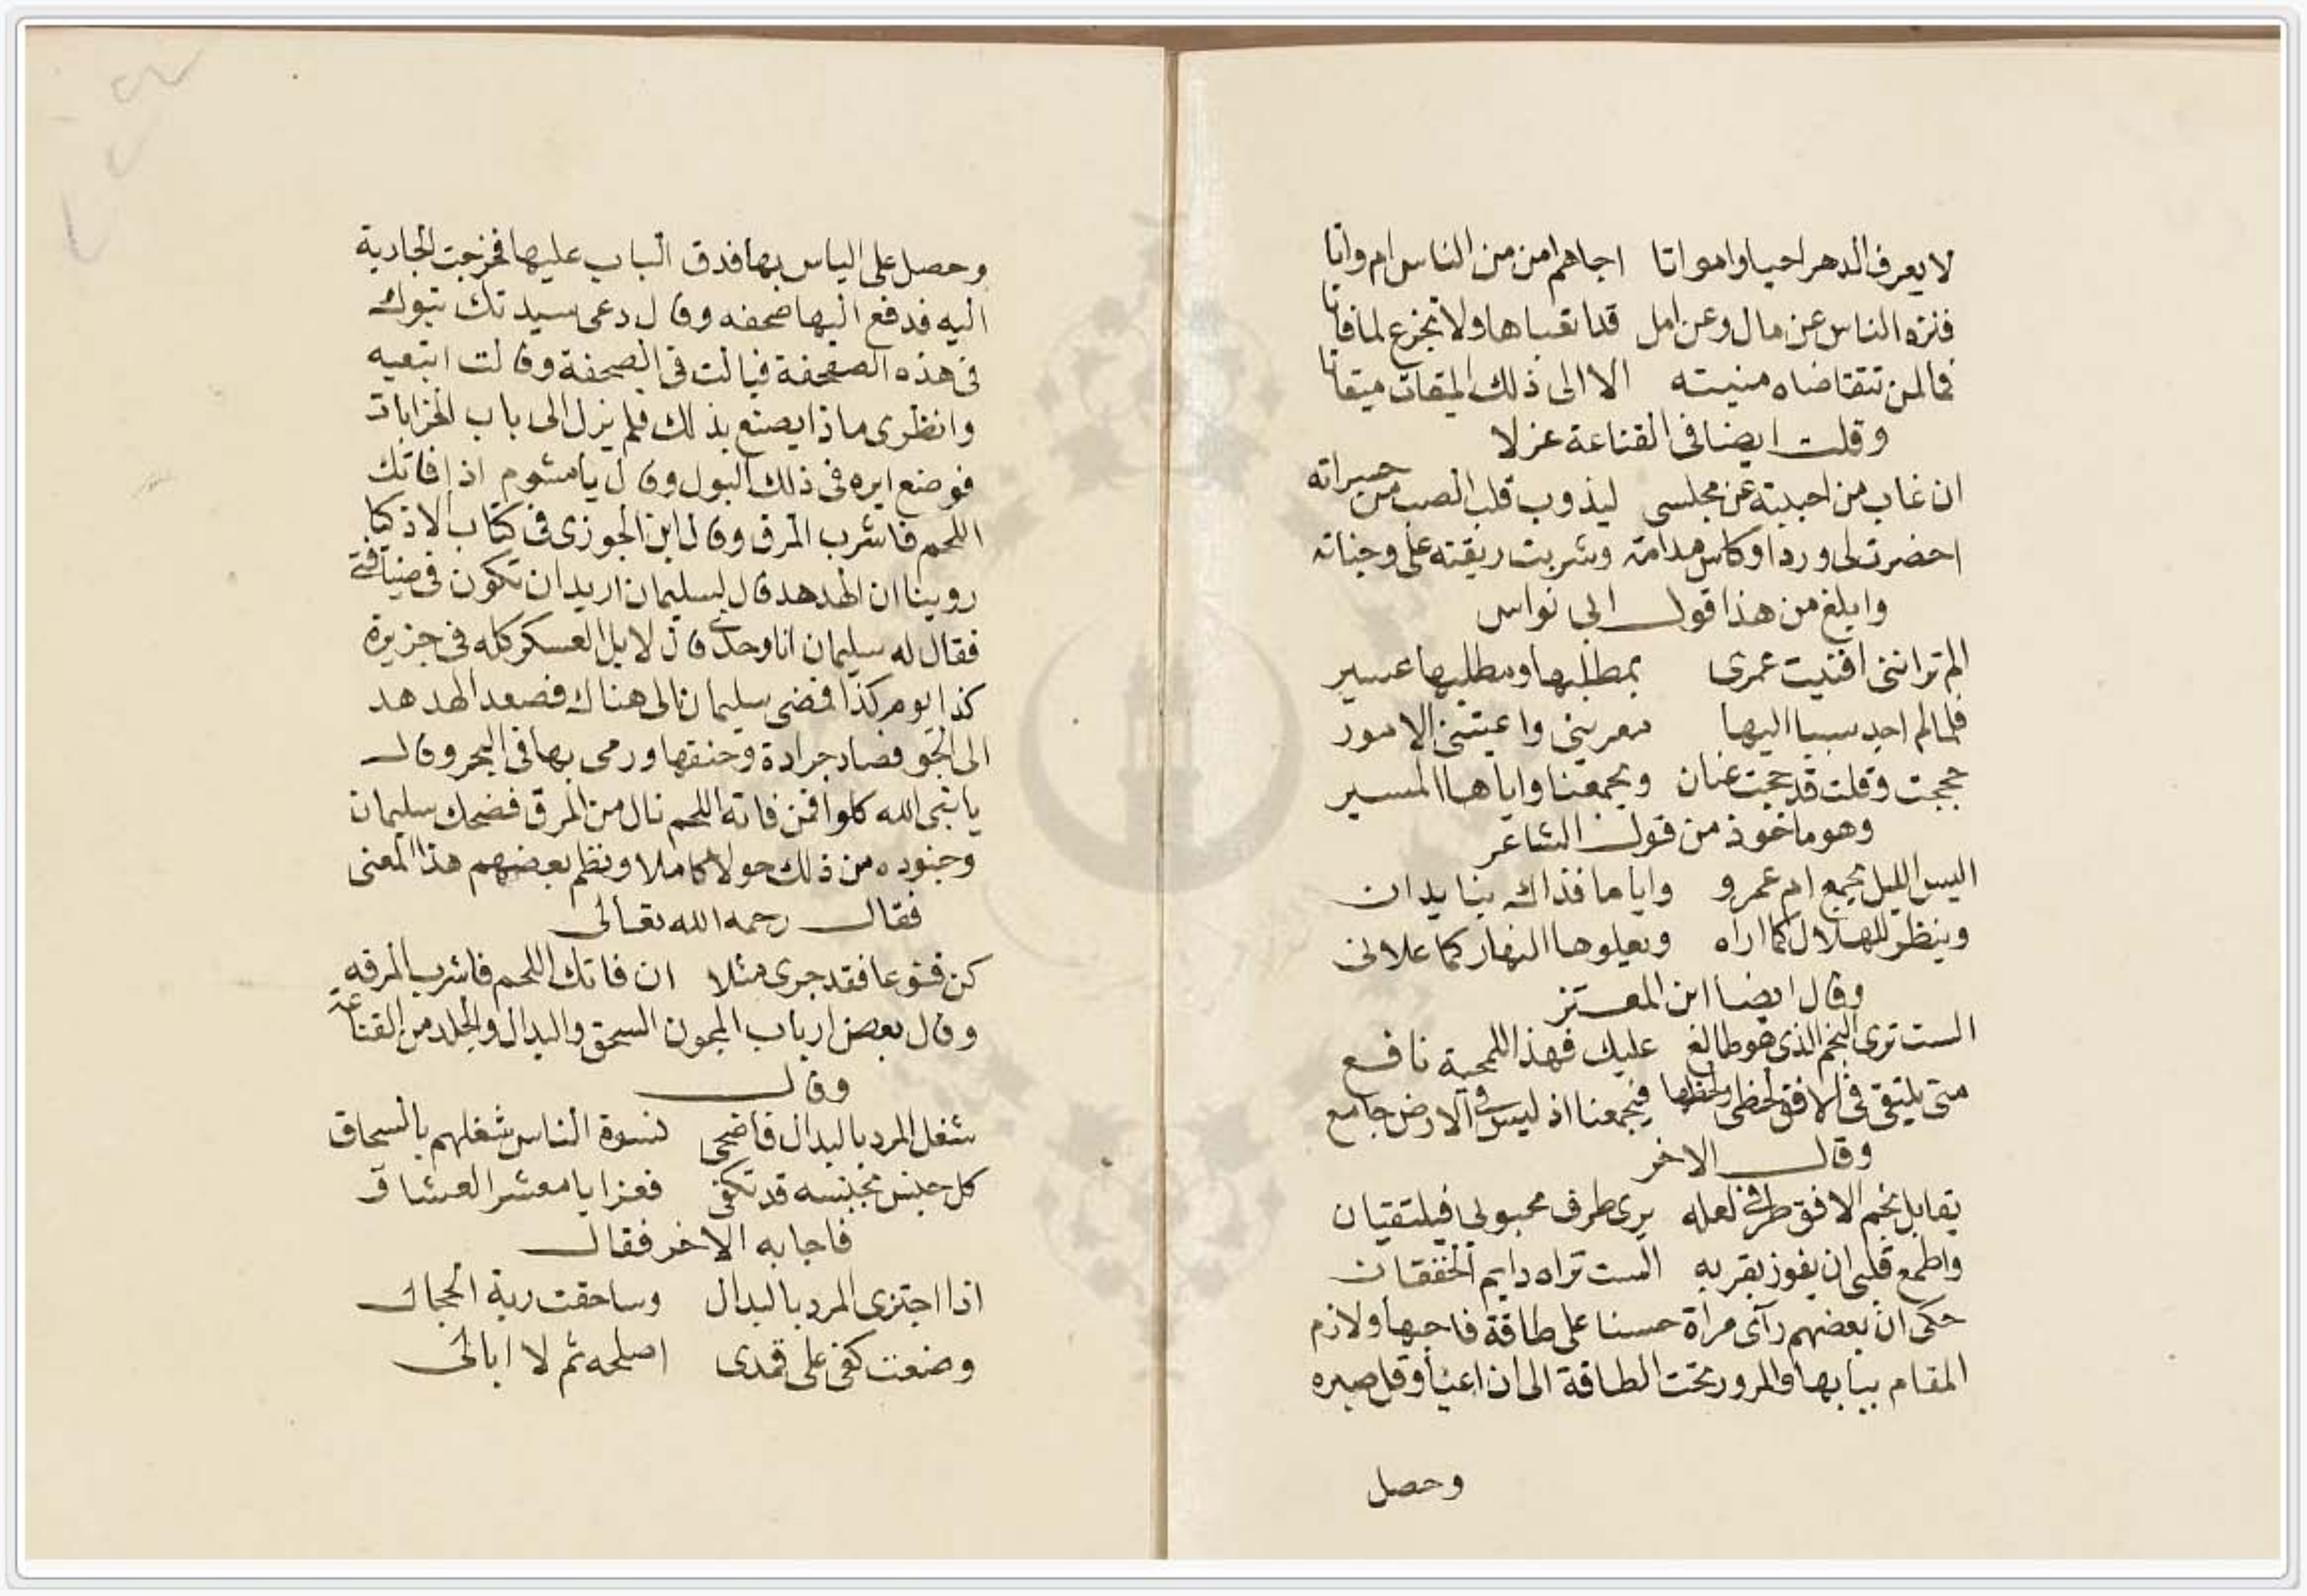 لا يعرف الدهر احيا وامواتا اجاهم امن من الناس ام واتا
فنزه الناس عن مال وعن امل قد اتعباها ولا تجزع لما فاتا
فما لمن تتقاضاه منيته الا الى ذلك الميقات ميقاتا
وقلت ايضا فى القناعة غزلا
ان غاب من احببته عن مجلسى ليذوب قلب الصب من حسراته
احضرت لى وردا وكاس مدامة وشربت ريقته على وجناته
وابلغ من هذا قول ابى نواس
الم تر اننى افنيت عمرى بمطلبها ومطلبها عسير
فلما لم اجد سببا اليها يقربنى واعيتنى الامور
حججت وقلت قد حجت عنان ويجمعنا واياها المسير
وهو ماخوذ من قول الشاعر
اليس الليل يجمع ام عمرو وايانا فذاك بنا يدان
وينظر للهلال كما اراه ويعلوها النهار كما علانى
وقال ايضا ابن المعتز
الست ترى النجم الذى هو طالع عليك فهذا للمحبة نافع
متى يلتقى فى الافق لحظى ولحظها فيجمعنا اذ ليس فى الارض جامع
وقال الاخر
يقابل نجم الافق طرفى لعله يرى طرف محبوبى فيلتقيان
واطمع قلبى ان يفوز بقربه الست تراه دايم الخفقان
حكى ان بعضهم رآى مراة حسنا على طاقة فاحبها ولازم
المقام ببابها والمرور تحت الطاقة الى ان اعيا وقل صبره
وحصل
وحصل على الياس بها فدق الباب عليها فخرجت الجارية
اليه فدفع اليها صحفه وقال دعى سيدتك تبول
فى هذه الصحفة فبالت فى الصحفة وقالت اتبعيه
وانظرى ماذا يصنع بذلك فلم يزل الى باب الخرابات
فوضع ايره فى ذلك البول وقال يا مشوم اذا فاتك
اللحم فاشرب المرق وقال ابن الجوزى فى كتاب الاذكيا
روينا ان الهدهد قال لسليمان اريد ان تكون فى ضيافتى
فقال له سليمان انا وحدى قال لا بل العسكر كله فى جزيرة
كذا يوم كذا فمضى سليمان الى هناك فصعد الهدهد
الى الجو فصاد جرادة وخنقها ورمى بها فى البحر وقال
يا نبى الله كلوا فمن فاته اللحم نال من المرق فضحك سليمان
وجنوده من ذلك حولا كاملا ونظم بعضهم هذا المعنى
فقال رحمه الله تعالى
كن قنوعا فقد جرى مثلا ان فاتك اللحم فاشرب المرقه
وقال بعض ارباب المجون السحق والبدال والجلد من القناعة
وقال
شغل المرد بالبدال فاضحى نسوة الناس شغلهم بالسحاق
كل جنس بجنسه قد تكفى فعزا يا معشر العشاق
فاجابه الاخر فقال
اذا اجتزى المرد بالبدال وساحقت ربة الحجال
وضعت كفى على قمدى اصلحه ثم لا ابالى